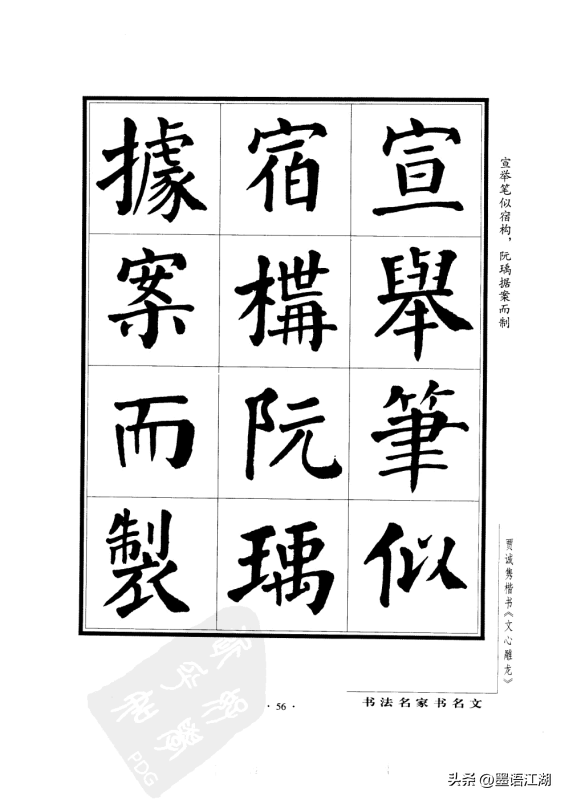 宣舉筆似
宿構阮瑀
據案而製
宣举笔似宿构，阮瑀据案而制
贾诚隽楷书《文心雕龙》
书法名家书名文
· 56 ·
PDG
头条 @墨语江湖